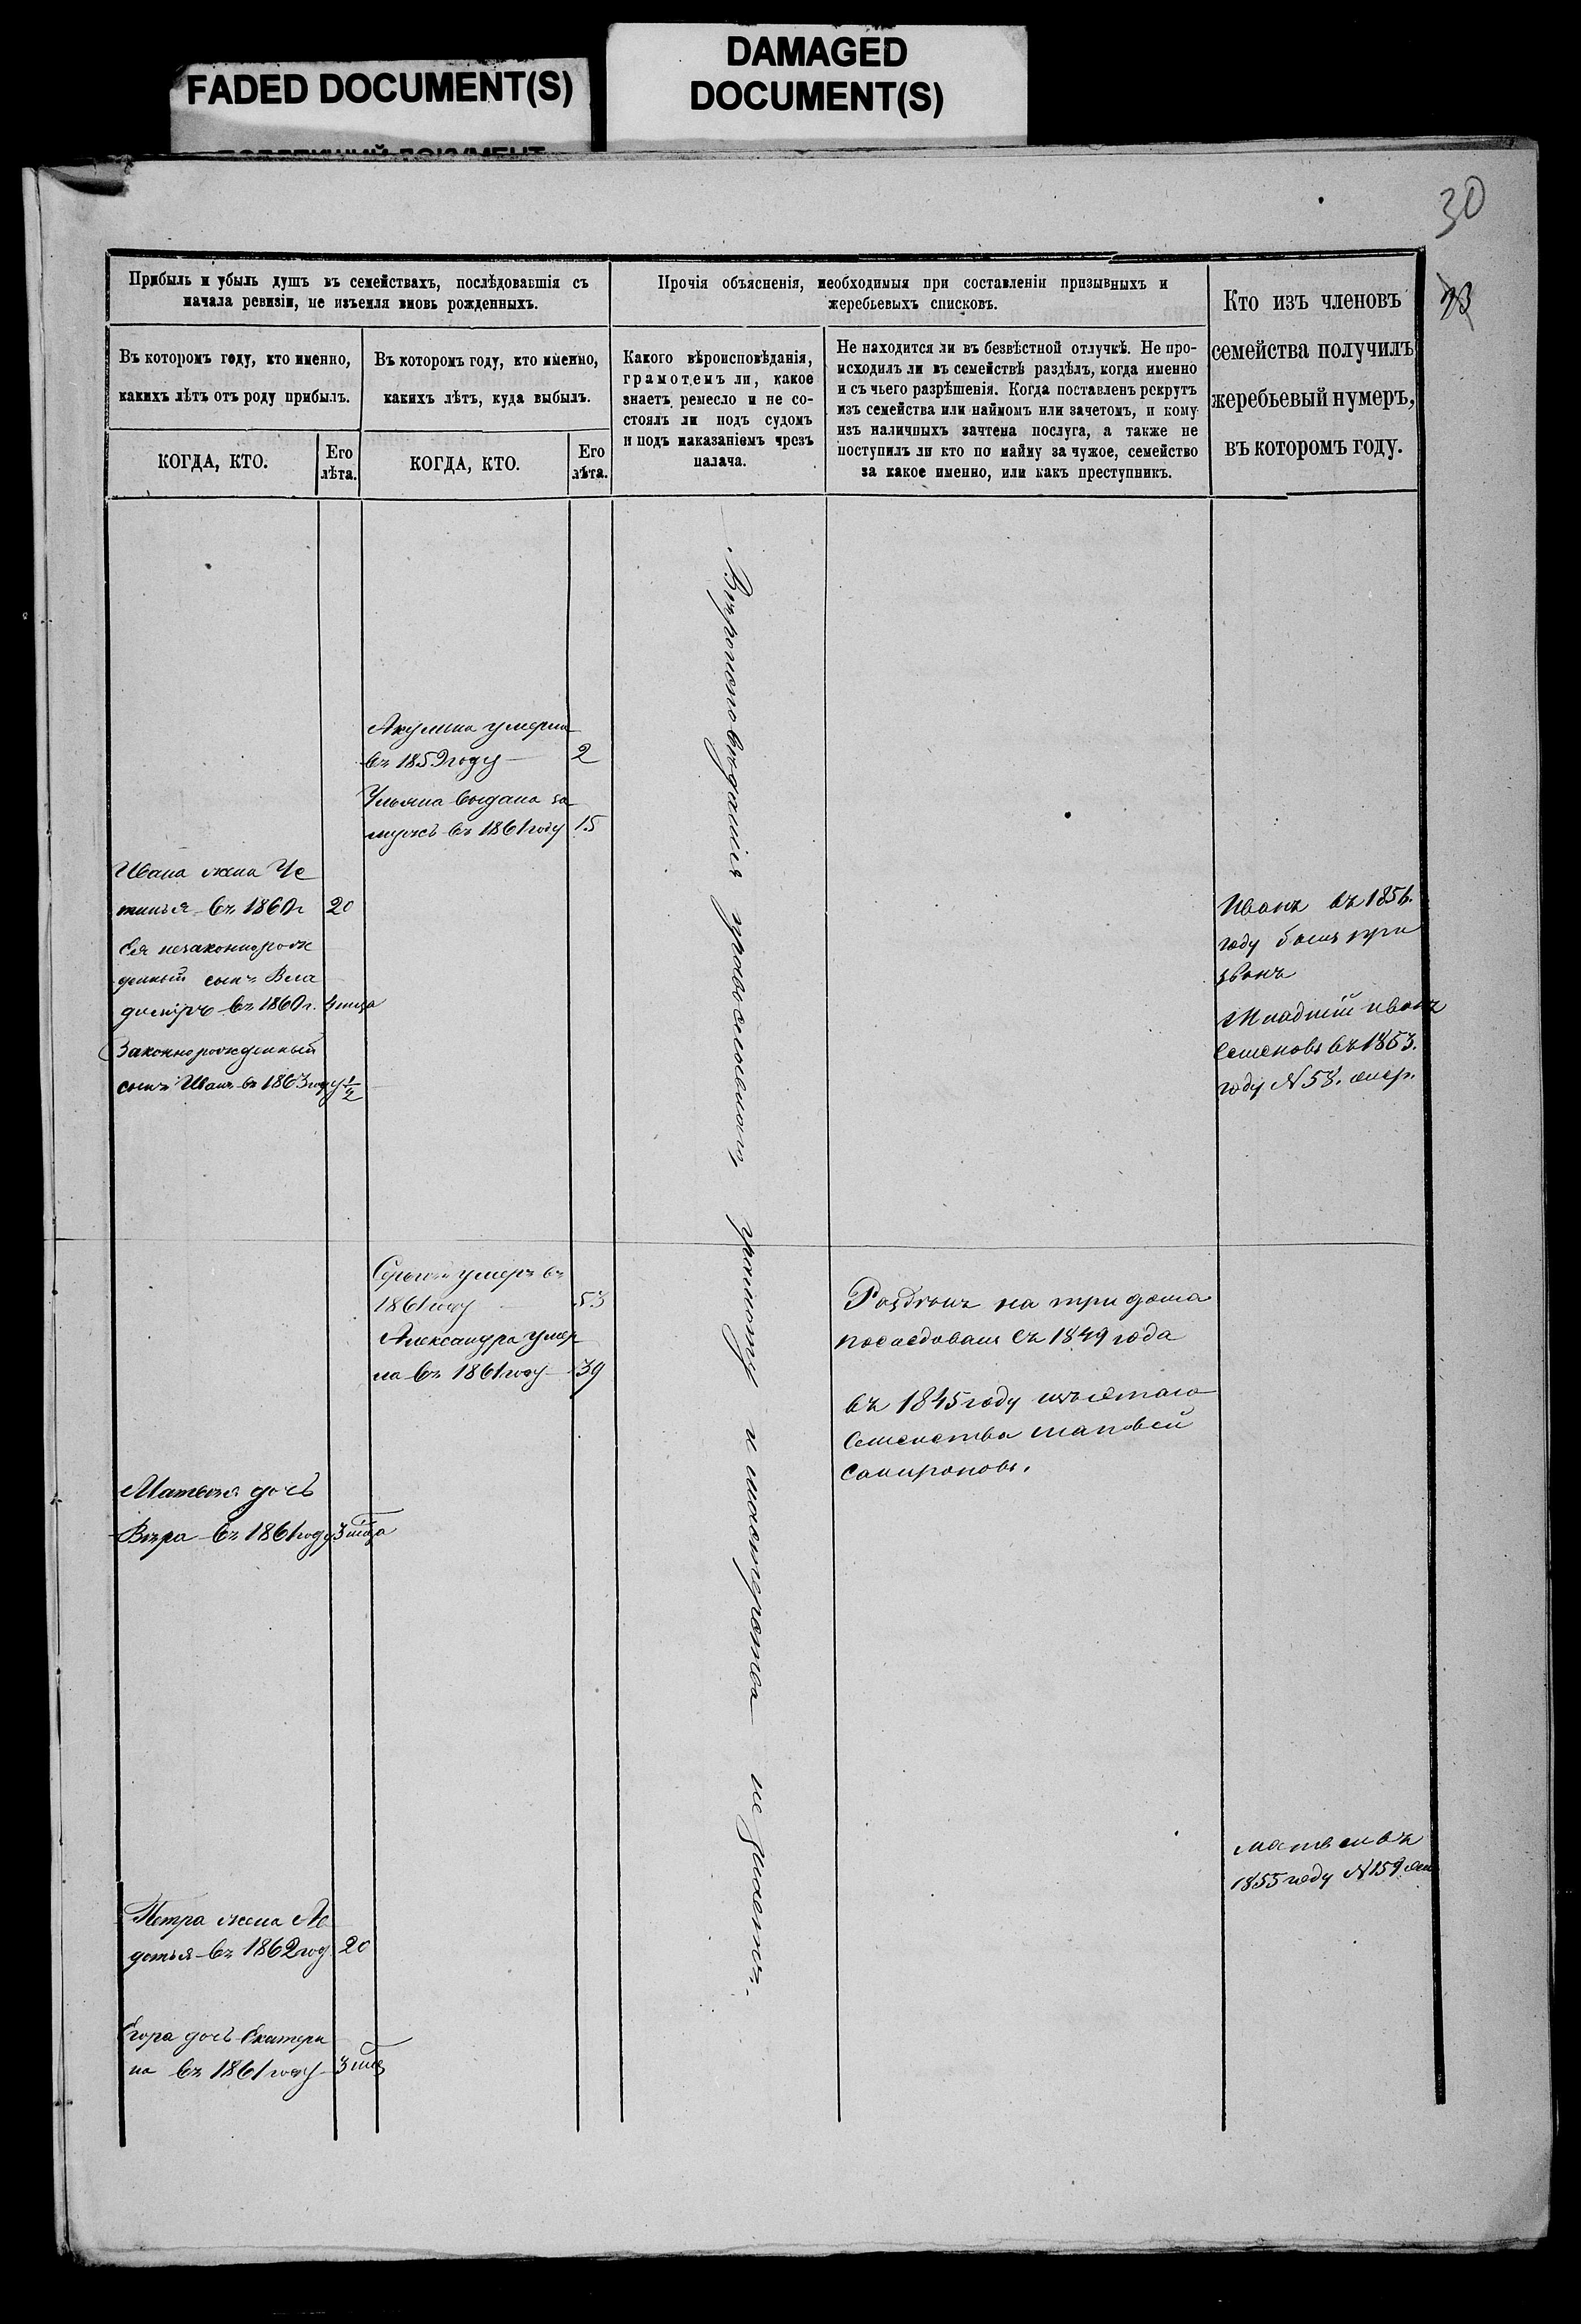 FADED DOCUMENT(S)
DAMAGED
DOCUMENT(S)
30
Прибыль и убыль душъ въ семействахъ, послѣдовавшія съ
начала ревизіи, не изъемля вновь рожденныхъ.
Прочія объясненія, необходимыя при составленіи призывныхъ и
жеребьевыхъ списковъ.
Кто изъ членовъ
семейства получилъ
жеребьевый нумеръ,
въ которомъ году.
Въ которомъ году, кто именно,
какихъ лѣтъ отъ роду прибылъ.
Въ которомъ году, кто именно,
какихъ лѣтъ, куда выбылъ.
Какого вѣроисповѣданія,
грамотемъ ли, какое
знаетъ ремесло и не со-
стоялъ ли подъ судомъ
и подъ наказаніемъ чрезъ
палача.
Не находится ли въ безвѣстной отлучкѣ. Не про-
исходилъ ли въ семействѣ раздѣлъ, когда именно
и съ чьего разрѣшенія. Когда поставленъ рекрутъ
изъ семейства или наймомъ или зачетомъ, и кому
изъ наличныхъ зачтена послуга, а также не
поступилъ ли кто по найму за чужое, семейство
за какое именно, или какъ преступникъ.
КОГДА, КТО.
Его
лѣта.
КОГДА, КТО.
Его
лѣта.
Акулина умерла
въ 1859 году 2
Ульяна выдана за
мужъ въ 1861 году 15
Ивана жена Че
тинья въ 1860 г 20
Ея незаконнорож
денный сынъ Вла
димiръ въ 1860 г. 4 мца
Законнорожденный
сынъ Иванъ въ 1863 году 1/2
Иванъ въ 1856.
году былъ при
званъ
Младшiй Иванъ
Семеновъ въ 1853.
году N 58.
Вѣроисповѣданiя православнаго, грамоту и мастерства не знаетъ.
Сергей умеръ въ
1861 году 53
Александра умер
ла въ 1861 году 39
Раздѣлъ на три дома
последовалъ съ 1849 года
въ 1845 году изъ етаго
Семейства
Сапироновъ.
Матвея дочь
Вѣра въ 1861 году 3 мца
Матвей въ
1855 году N 159
Петра жена Ав
дотья въ 1862 год 20
Егора дочь Екатери
на въ 1861 году 3 мца